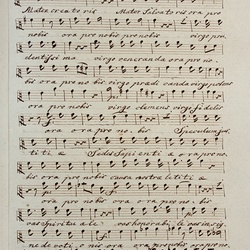 Mater creatoris Mater Salvatoris ora pro
nobis ora pro nobis pro nobis virgo pru
dentissima virgo veneranda ora pro no
bis ora pro nobis virgo praedicanda virgo potens
ora pro nobis virgo clemens virgo fidelis
ora ora pro no bis Speculum jus
titiae Sedes Sapientiae ora pro no
bis ora pro nobis causa nostrae laetitiae
vas Spirituale vas honorabile vas insig
ne devotionis ora pro nobis ora pro no